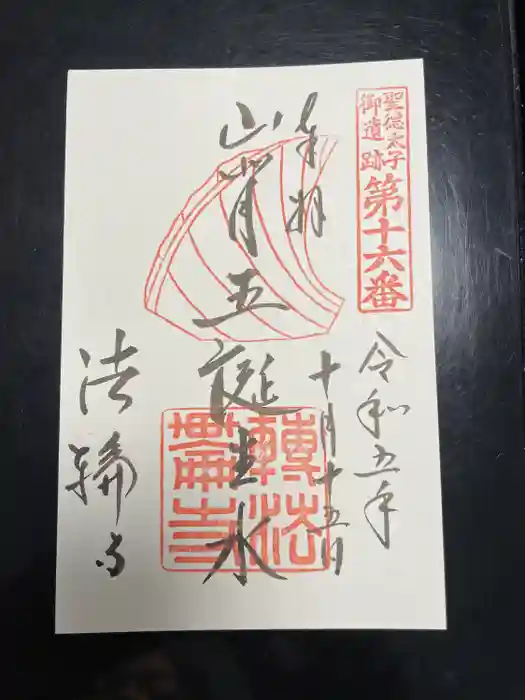 聖徳太子
御遺跡
第十六番
令和五年
十月十五日
奉拝
山背王誕生水
轉法
法輪寺